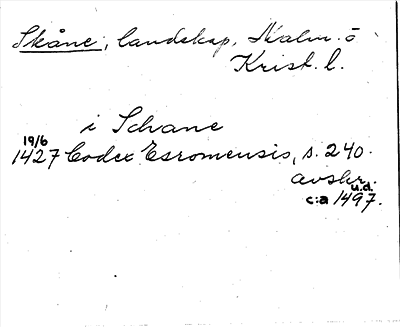 Skåne, landskap, Malm. o
Krist. l.
i Schane
19/6
1427 Codex Esromensis, s. 240.
avskr. u.d.
c:a 1497.